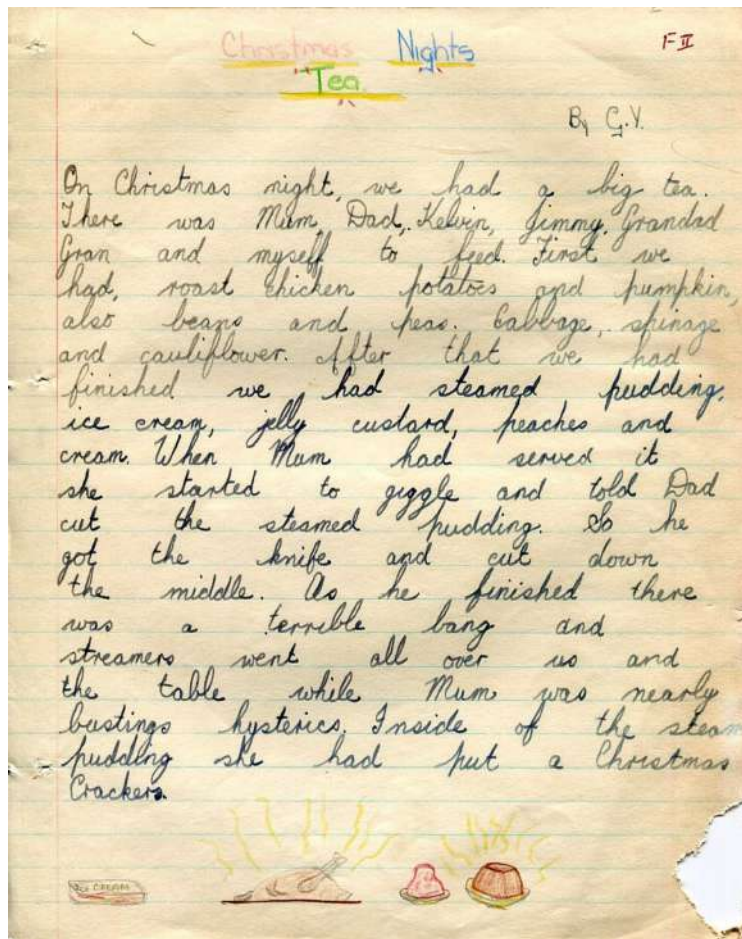 Christmas Nights
F II
Tea.
By G.Y.
On Christmas night, we had a big tea.
There was Mum, Dad, Kelvin, Jimmy, Grandad
Gran and myself to feed. First we
had, roast chicken potatoes and pumpkin,
also beans and peas. Cabbage, spinage
and cauliflower. After that we had
finished we had steamed pudding,
ice cream, jelly custard, peaches and
cream. When Mum had served it
she started to giggle and told Dad
cut the steamed pudding. So he
got the knife and cut down
the middle. As he finished there
was a terrible bang and
streamers went all over us and
the table while Mum was nearly
bustings hysterics. Inside of the steam
pudding she had put a Christmas
Crackers.
ICE CREAM